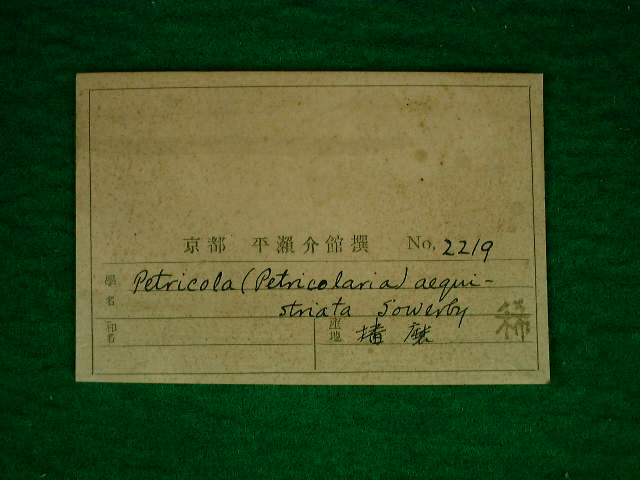 京都 平瀨介館撰 No. 2219
學名 Petricola (Petricolaria) aequi-
striata Sowerby
稀
和名 産地 播磨